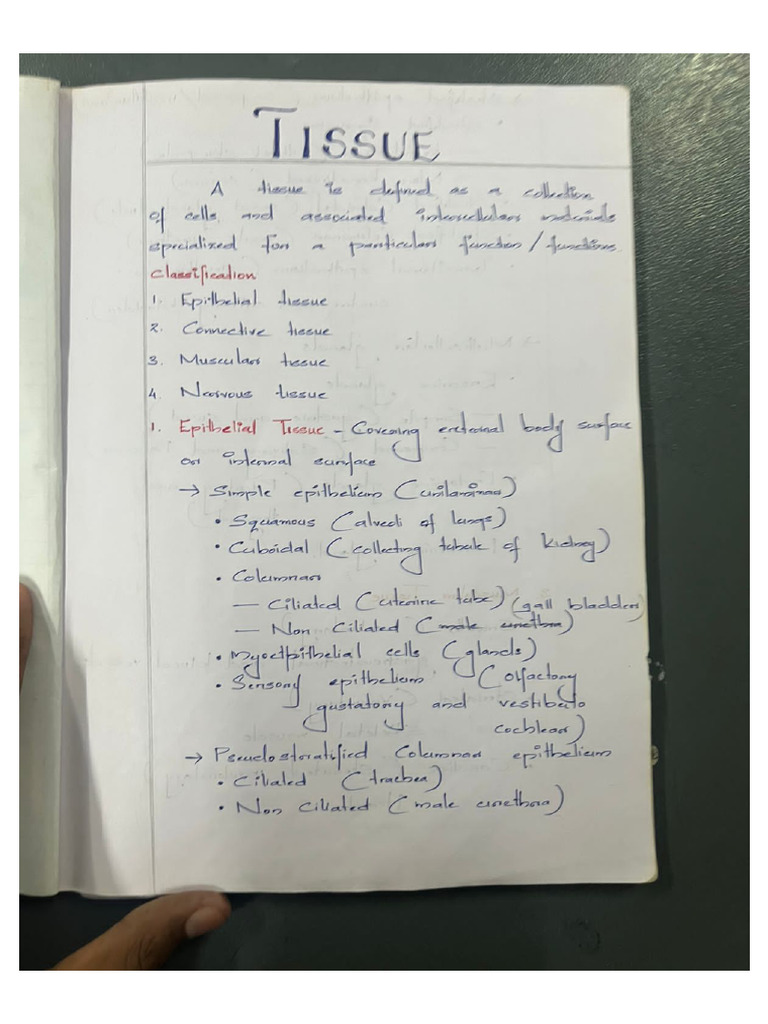 TISSUE
A tissue is defined as a collection
of cells and associated intercellular materials
specialized for a particular function / functions.
Classification
1. Epithelial tissue
2. Connective tissue
3. Muscular tissue
4. Nervous tissue
1. Epithelial Tissue - Covering external body surface
or internal surface
→ Simple epithelium (unilaminar)
• Squamous (alveoli of lungs)
• Cuboidal (collecting tubule of kidney)
• Columnar
— Ciliated (uterine tube) (gall bladder)
— Non Ciliated (male urethra)
• Myoetpithelial cells (glands)
• Sensory epithelium (Olfactory
gustatory and vestibulo
cochlear)
→ Pseudostratified Columnar epithelium
• Ciliated (trachea)
• Non Ciliated (male urethra)